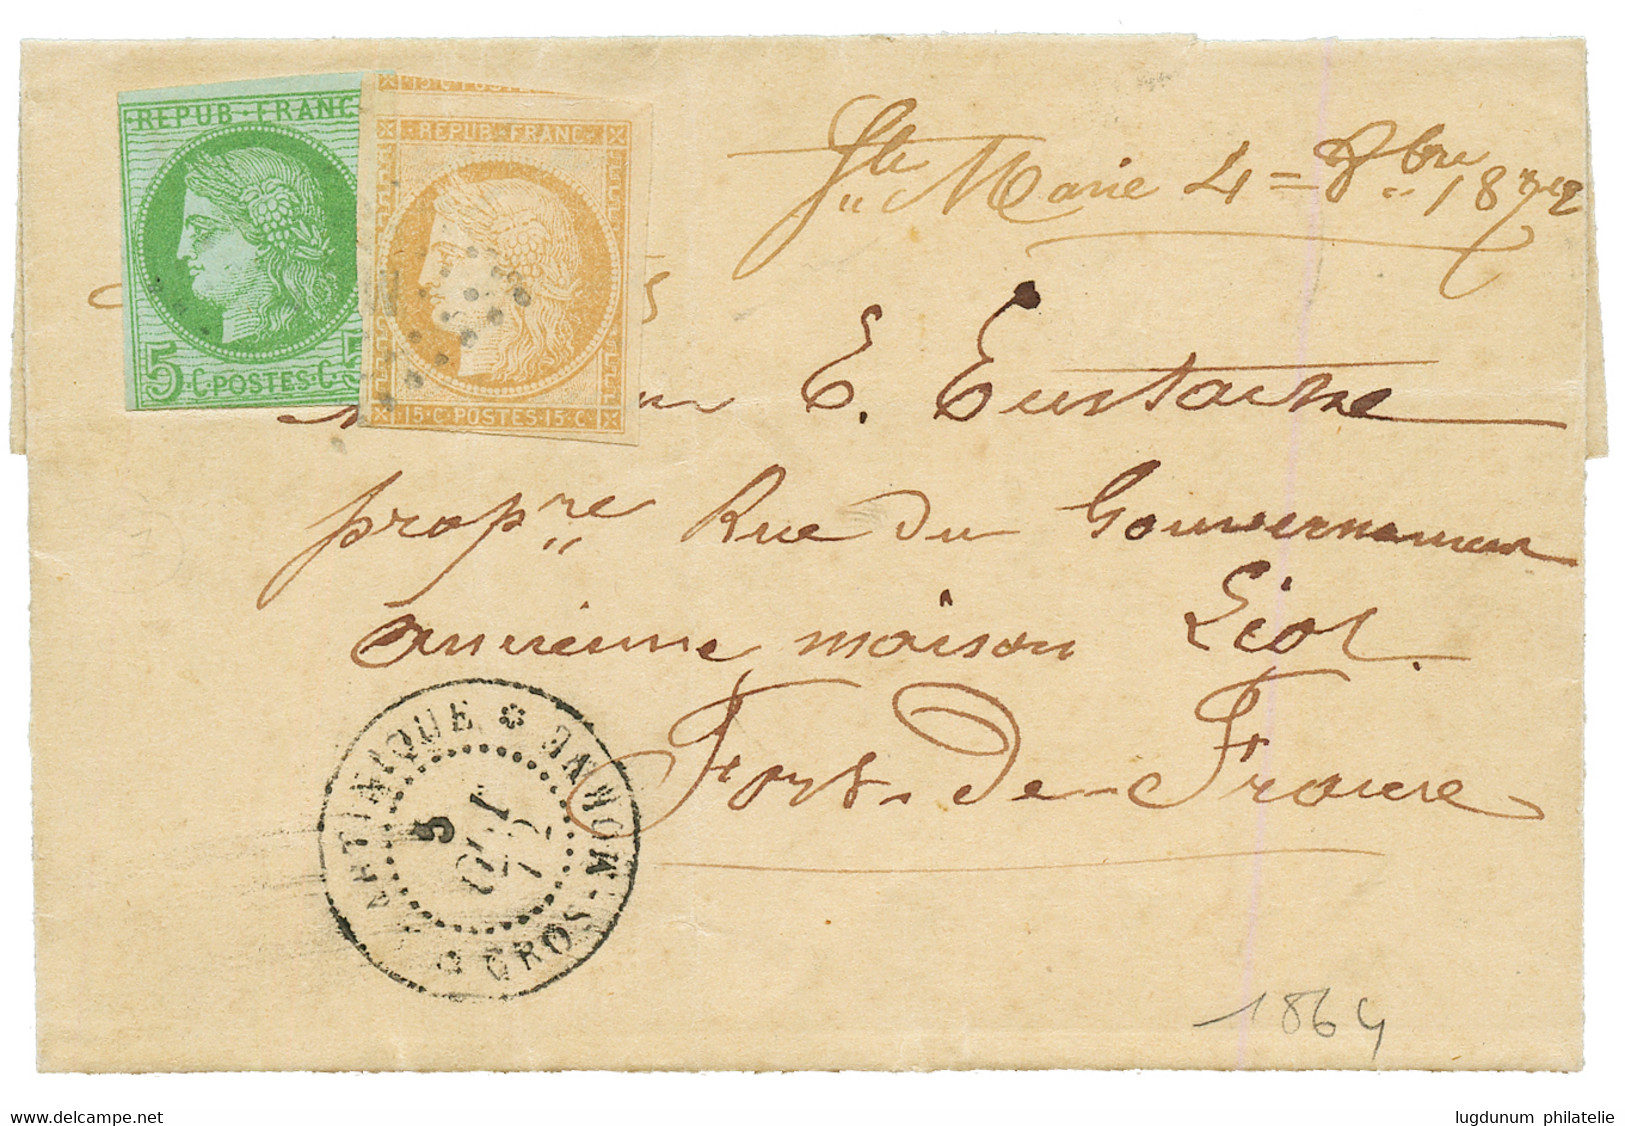 REPUB·FRANC
5·C·POSTES·C·5
15·C·POSTES
·REPUB·FRANC·
15·C·POSTES·15·C·
Ste Marie 4 = 8bre 1872
E. Eustache
propre Rue du Gouvernement
ancienne maison Liot.
Fort-de-France
MARTINIQUE
GROS-MORNE
5
OCT
72
1864
delcampe.net
lugdunum philatelie